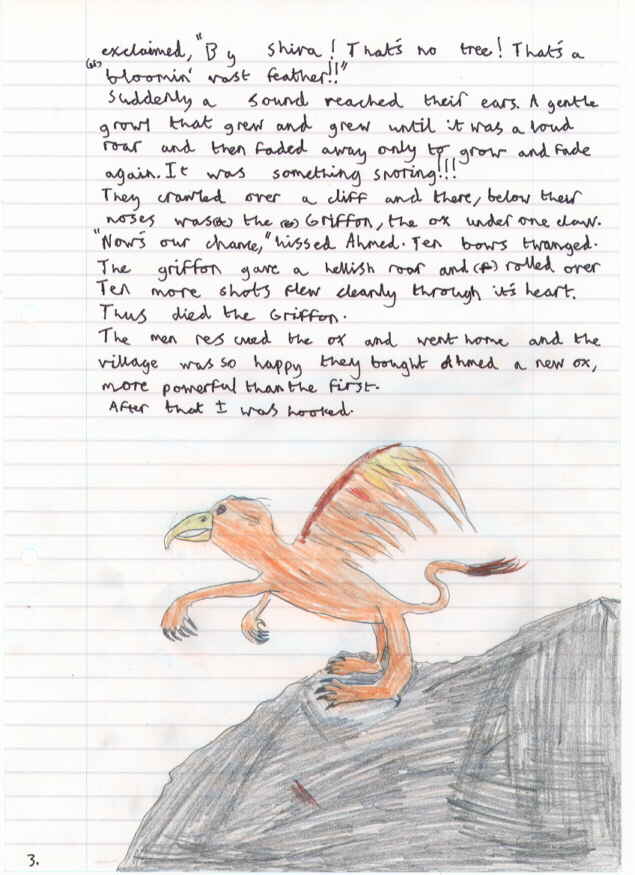 exclaimed, "By Shiva! That's no tree! That's a
bloomin' vast feather!!"
Suddenly a sound reached their ears. A gentle
growl that grew and grew until it was a loud
roar and then faded away only to grow and fade
again. It was something snoring!!!
They crawled over a cliff and there, below their
noses was the Griffon, the ox under one claw.
"Now's our chance," hissed Ahmed. Ten bows twanged.
The griffon gave a hellish roar and rolled over
Ten more shots flew cleanly through it's heart.
Thus died the Griffon.
The men rescued the ox and went home and the
village was so happy they bought Ahmed a new ox,
more powerful than the first.
After that I was hooked.
3.